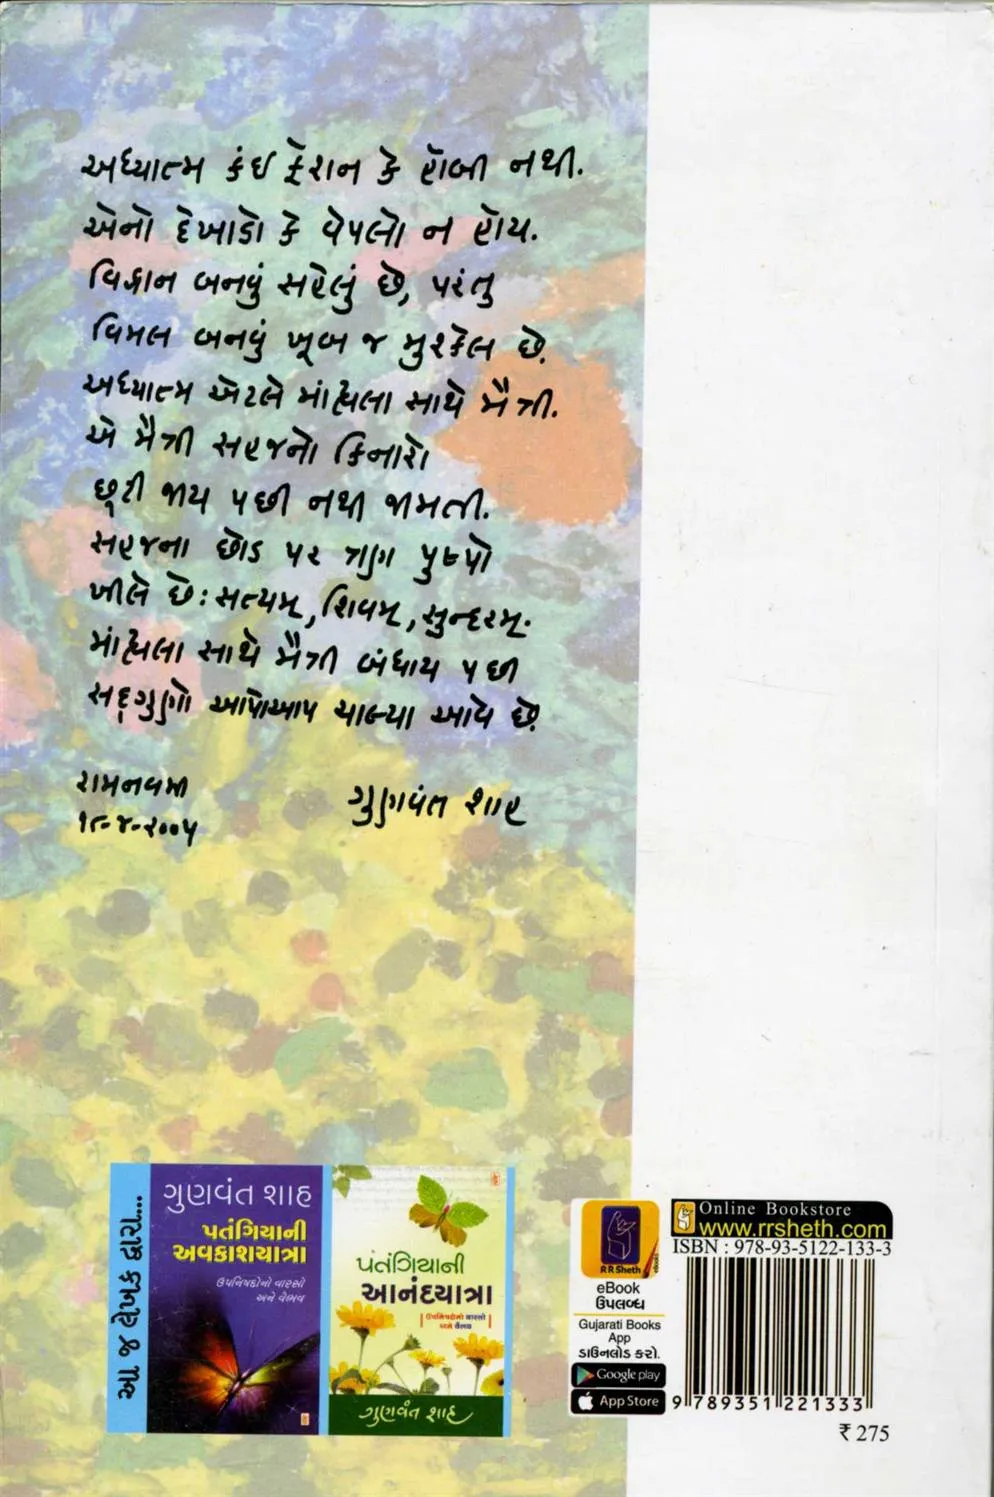 અધ્યાત્મ કંઈ ફૅશન કે હૉબી નથી.
એનો દેખાડો કે વેપલો ન હોય.
વિદ્વાન બનવું સહેલું છે, પરંતુ
વિમલ બનવું ખૂબ જ મુશ્કેલ છે.
અધ્યાત્મ એટલે માંહ્યલા સાથે મૈત્રી.
એ મૈત્રી સહજનો કિનારો
છૂટી જાય પછી નથી જામતી.
સહજના છોડ પર ત્રણ પુષ્પો
ખીલે છે: સત્યમ્, શિવમ્, સુન્દરમ્.
માંહ્યલા સાથે મૈત્રી બંધાય પછી
સદ્ગુણો આપોઆપ ચાલ્યા આવે છે.
રામનવમી
૧૮-૪-૨૦૦૫
ગુણવંત શાહ
આ જ લેખક દ્વારા...
ગુણવંત શાહ
પતંગિયાની
અવકાશયાત્રા
ઉપનિષદોનો વારસો
અને વૈભવ
પતંગિયાની
આનંદયાત્રા
ઉપનિષદોનો વારસો
અને વૈભવ
ગુણવંત શાહ
R R Sheth
eBooks
eBook
ઉપલબ્ધ
Gujarati Books
App
ડાઉનલોડ કરો.
Google play
App Store
Online Bookstore
www.rrsheth.com
ISBN : 978-93-5122-133-3
9 789351 221333
₹ 275